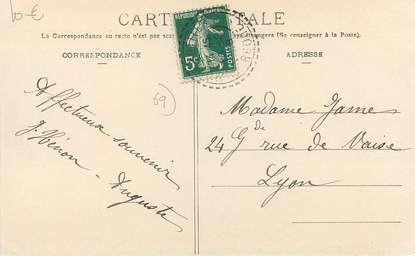 10 €
CARTE POSTALE
La Correspondance au recto n'est pas acceptée par tous les pays étrangers (Se renseigner à la Poste).
CORRESPONDANCE
ADRESSE
5c
POSTES
69)
Affectueux souvenir
J. Hénon
Auguste
Madame Jame
24 Gde rue de Vaise
Lyon